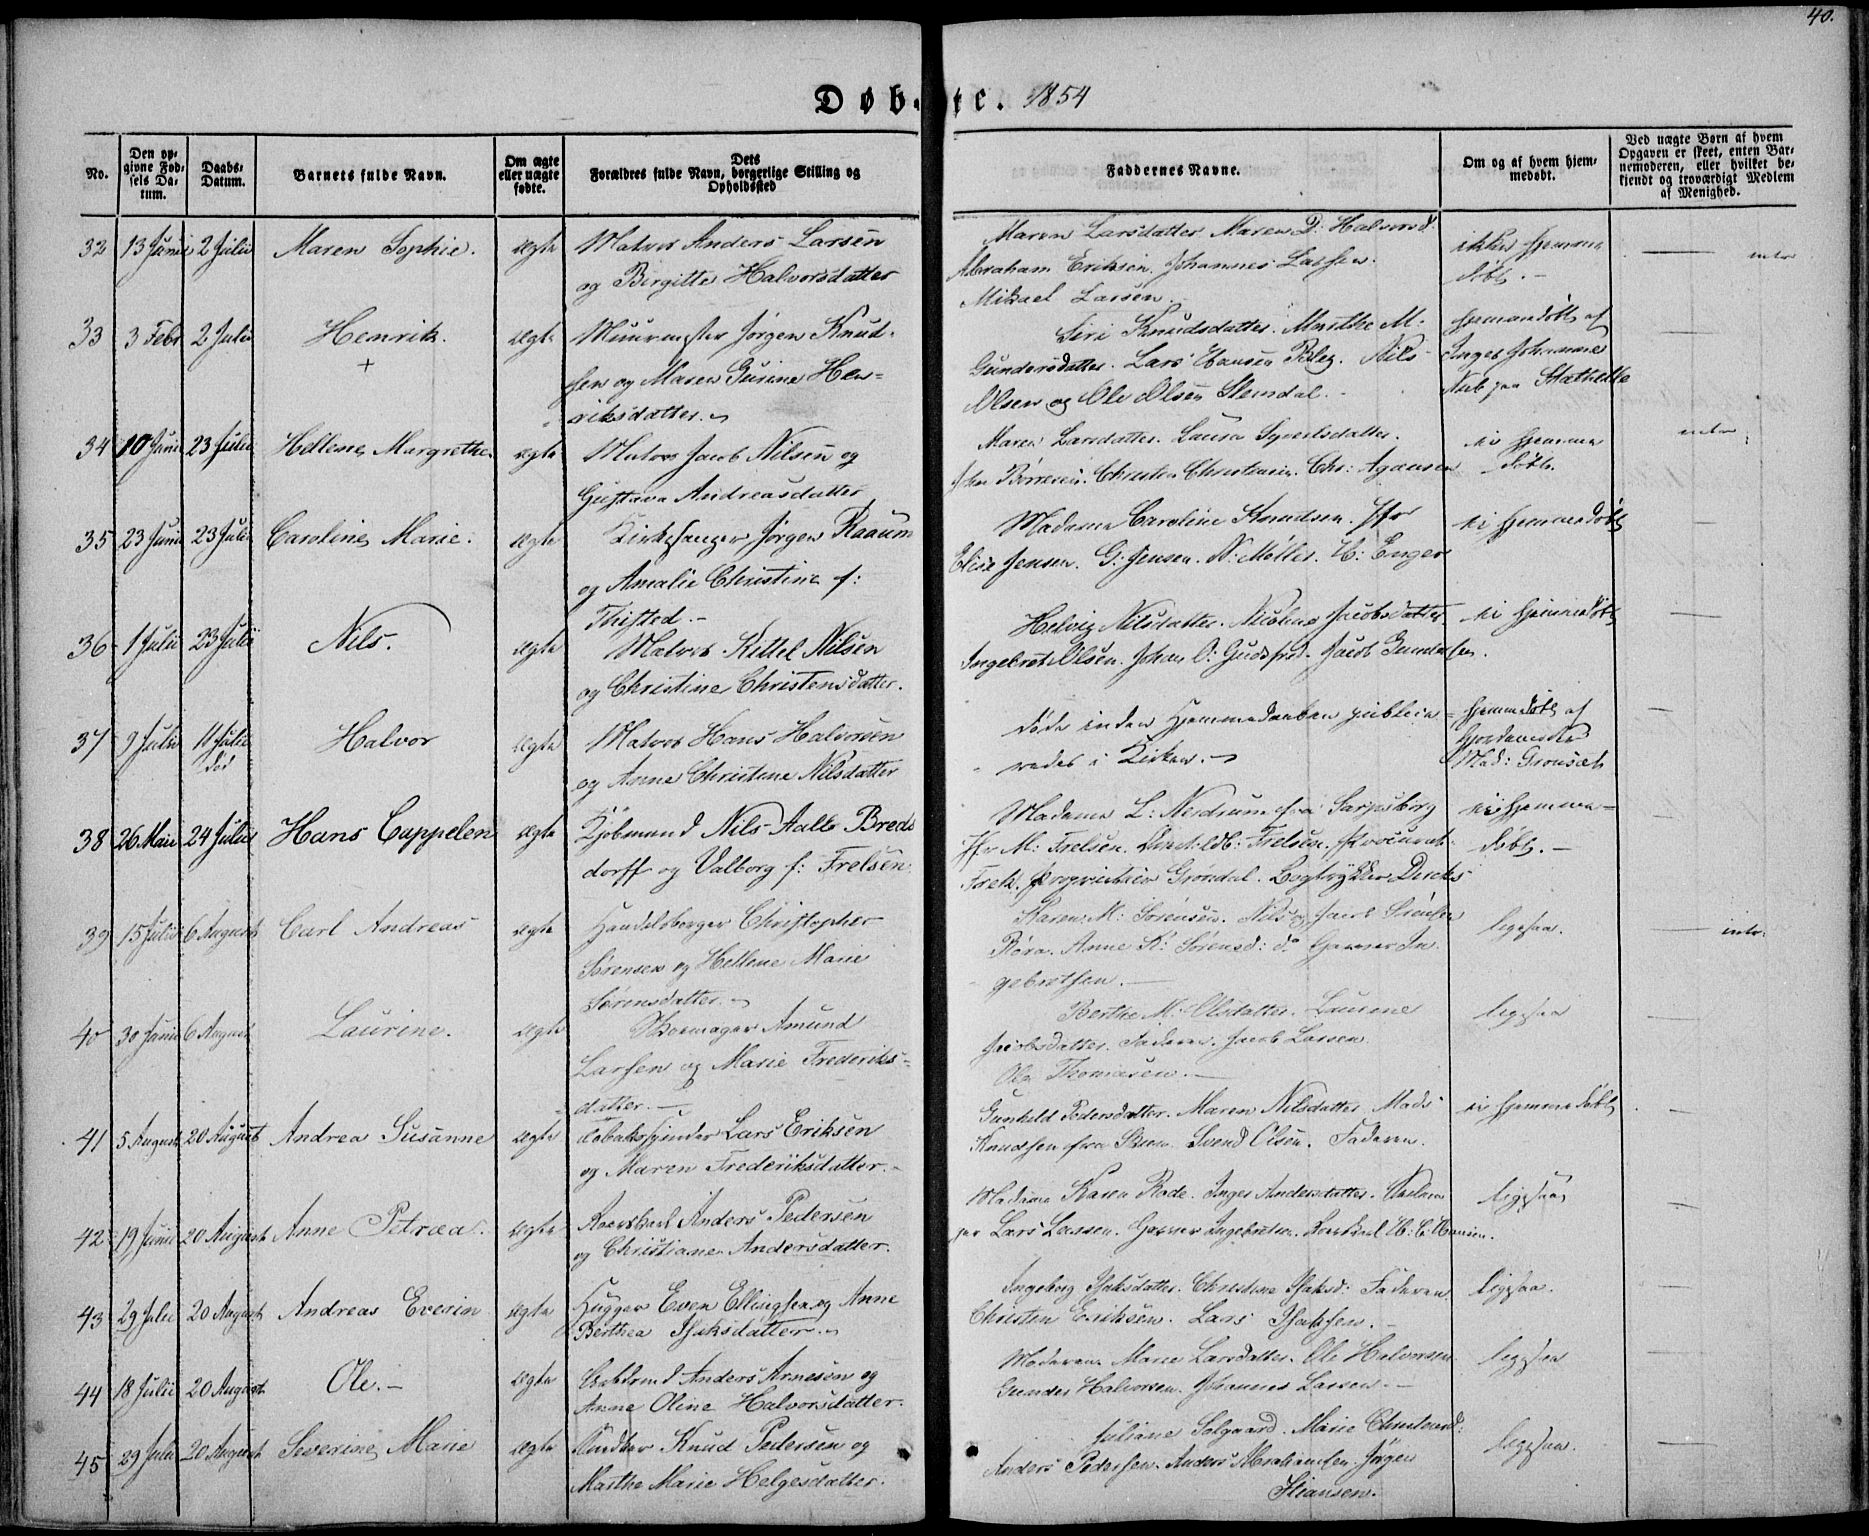 40.
Døbte. 1854
No.
Den opgivne Fødsels Datum.
Daabs-Datum.
Barnets fulde Navn.
Om ægte eller uægte fødte.
Dets Forældres fulde Navn, borgerlige Stilling og Opholdssted
Faddernes Navne.
Om og af hvem hjemmedøbt.
Ved uægte Børn af hvem Opgaven er skeet, enten Barnemoderen, eller hvilket bekjendt og troværdigt Medlem af Menighed.
32 13 Juni 2 Julii Maren Sophie. ægte Matros Anders Larsen
og Birgitte Halvorsdatter
Maren Larsdatter Maren D: Halvorsd.
Abraham Eriksen. Johannes Larsen.
Mikael Larsen.
ikke hjemme
døbt. -
33 3 Febr 2 Julii Henrik. ægte Muurmester Jørgen Knud-
+
sen og Maren Gurine Hen=
riksdatter.
Siri Knudsdatter. Marthe M.
Gundersdatter. Lars Hansen. Nils
Olsen og Ole Olsen Stemdal.
hjemmedøbt af
Inger Johanne
paa Stathelle
34 10 Juni 23 Julii Hellene Margrethe ægte Matros Jacob Nilsen og
Gustava Andreasdatter
Maren Larsdatter. Laura Syvertsdatter.
Børresen. Christen Christensen. Chr: Agansen
ei hjemme
døbt.
35 23 Juni 23 Julii Caroline Marie. ægte Kirkesanger Jørgen Raaum
og Amalie Christine f:
Thisted. -
Madame Caroline Knudsen. Jfr
Elise Jensen. G. Jensen. N. Møller. H: Enger
ei hjemmedøbt
36 1 Julii 23 Julii Nils. ægte Matros Kittel Nilsen
og Christine Christensdatter.
Helvig Nilsdatter. Nicoline Jacobsdatter
Ingebret Olsen. Johan O: Jacob
ei hjemmedøbt
37 9 Julii 11 Julii Halvor ægte Matros Hans Halvorsen
død
og Anne Christine Nilsdatter
døde inden Hjemmedaaben publice=
redes i Kirken.
hjemmedøbt af
Jordemoder
Mad: Gronsæt
38 26 Mai 24 Julii Hans Cappelen ægte Kjøbmand Nils Aall Breds
dorff og Valborg f: Frelsen.
Madame L: Nerdrum fra Sarpsborg
Jfr M: Frelsen. Frelsen. Procurat.
Proprietair Grøndal. Bogtrykker Dircks
ei hjemme=
døbt. -
39 15 Julii 6 August Carl Andreas ægte Handelsborger Christopher
Sørensen og Hellene Marie
Sørensdatter.
Karen M: Sørensen. Nils og Jacob Sørensen
Røra. Anne K: Sørensd: do Gunner In
gebretsen. -
ligesaa.
intr.
40 30 Juni 6 August Laurine. ægte Skomager Amund
Larsen og Marie Frederiks=
datter. -
Berthe M. Olsdatter. Laurine
Jacobsdatter. Faderen. Jacob Larsen.
Ole Thomasen. -
ligesaa
41 5 August 20 August Andrea Susanne ægte Tobaksspinder Lars Eriksen
og Maren Frederiksdatter.
Gunhild Pedersdatter. Maren Nilsdatter. Mads
Knudsen fra Skien. Svend Olsen. Faderen.
ei hjemmedøbt
42 19 Juni 20 August Anne Petræa. ægte Anders Pedersen
og Christiane Andersdatter.
Madame Karen Rode. Inger Andersdatter.
Lars Larsen. Gunner Ingebretsen. H: C: Hansen.
ligesaa
43 29 Julii 20 August Andreas Everin ægte Hugger Even Ellingsen og Anne
Berthea Isaksdatter.
Ingeborg Isaksdatter. Christine Isaksd: Faderen.
Christen Eriksen. Lars Isaksen. -
ligesaa.
44 18 Julii 20 August Ole. - ægte Anders Arnesen og
Anne Oline Halvorsdatter.
Moderen Marie Larsdatter. Ole Halvorsen.
Gunder Halvorsen. Johannes Larsen. -
ligesaa
45 29 Julii 20 August Severine Marie ægte Knud Pedersen og
Marthe Marie Helgesdatter.
Juliane Solgaard. Marie
Anders Pedersen. Anders Abrahamsen. Jørgen
Hansen.
ligesaa.